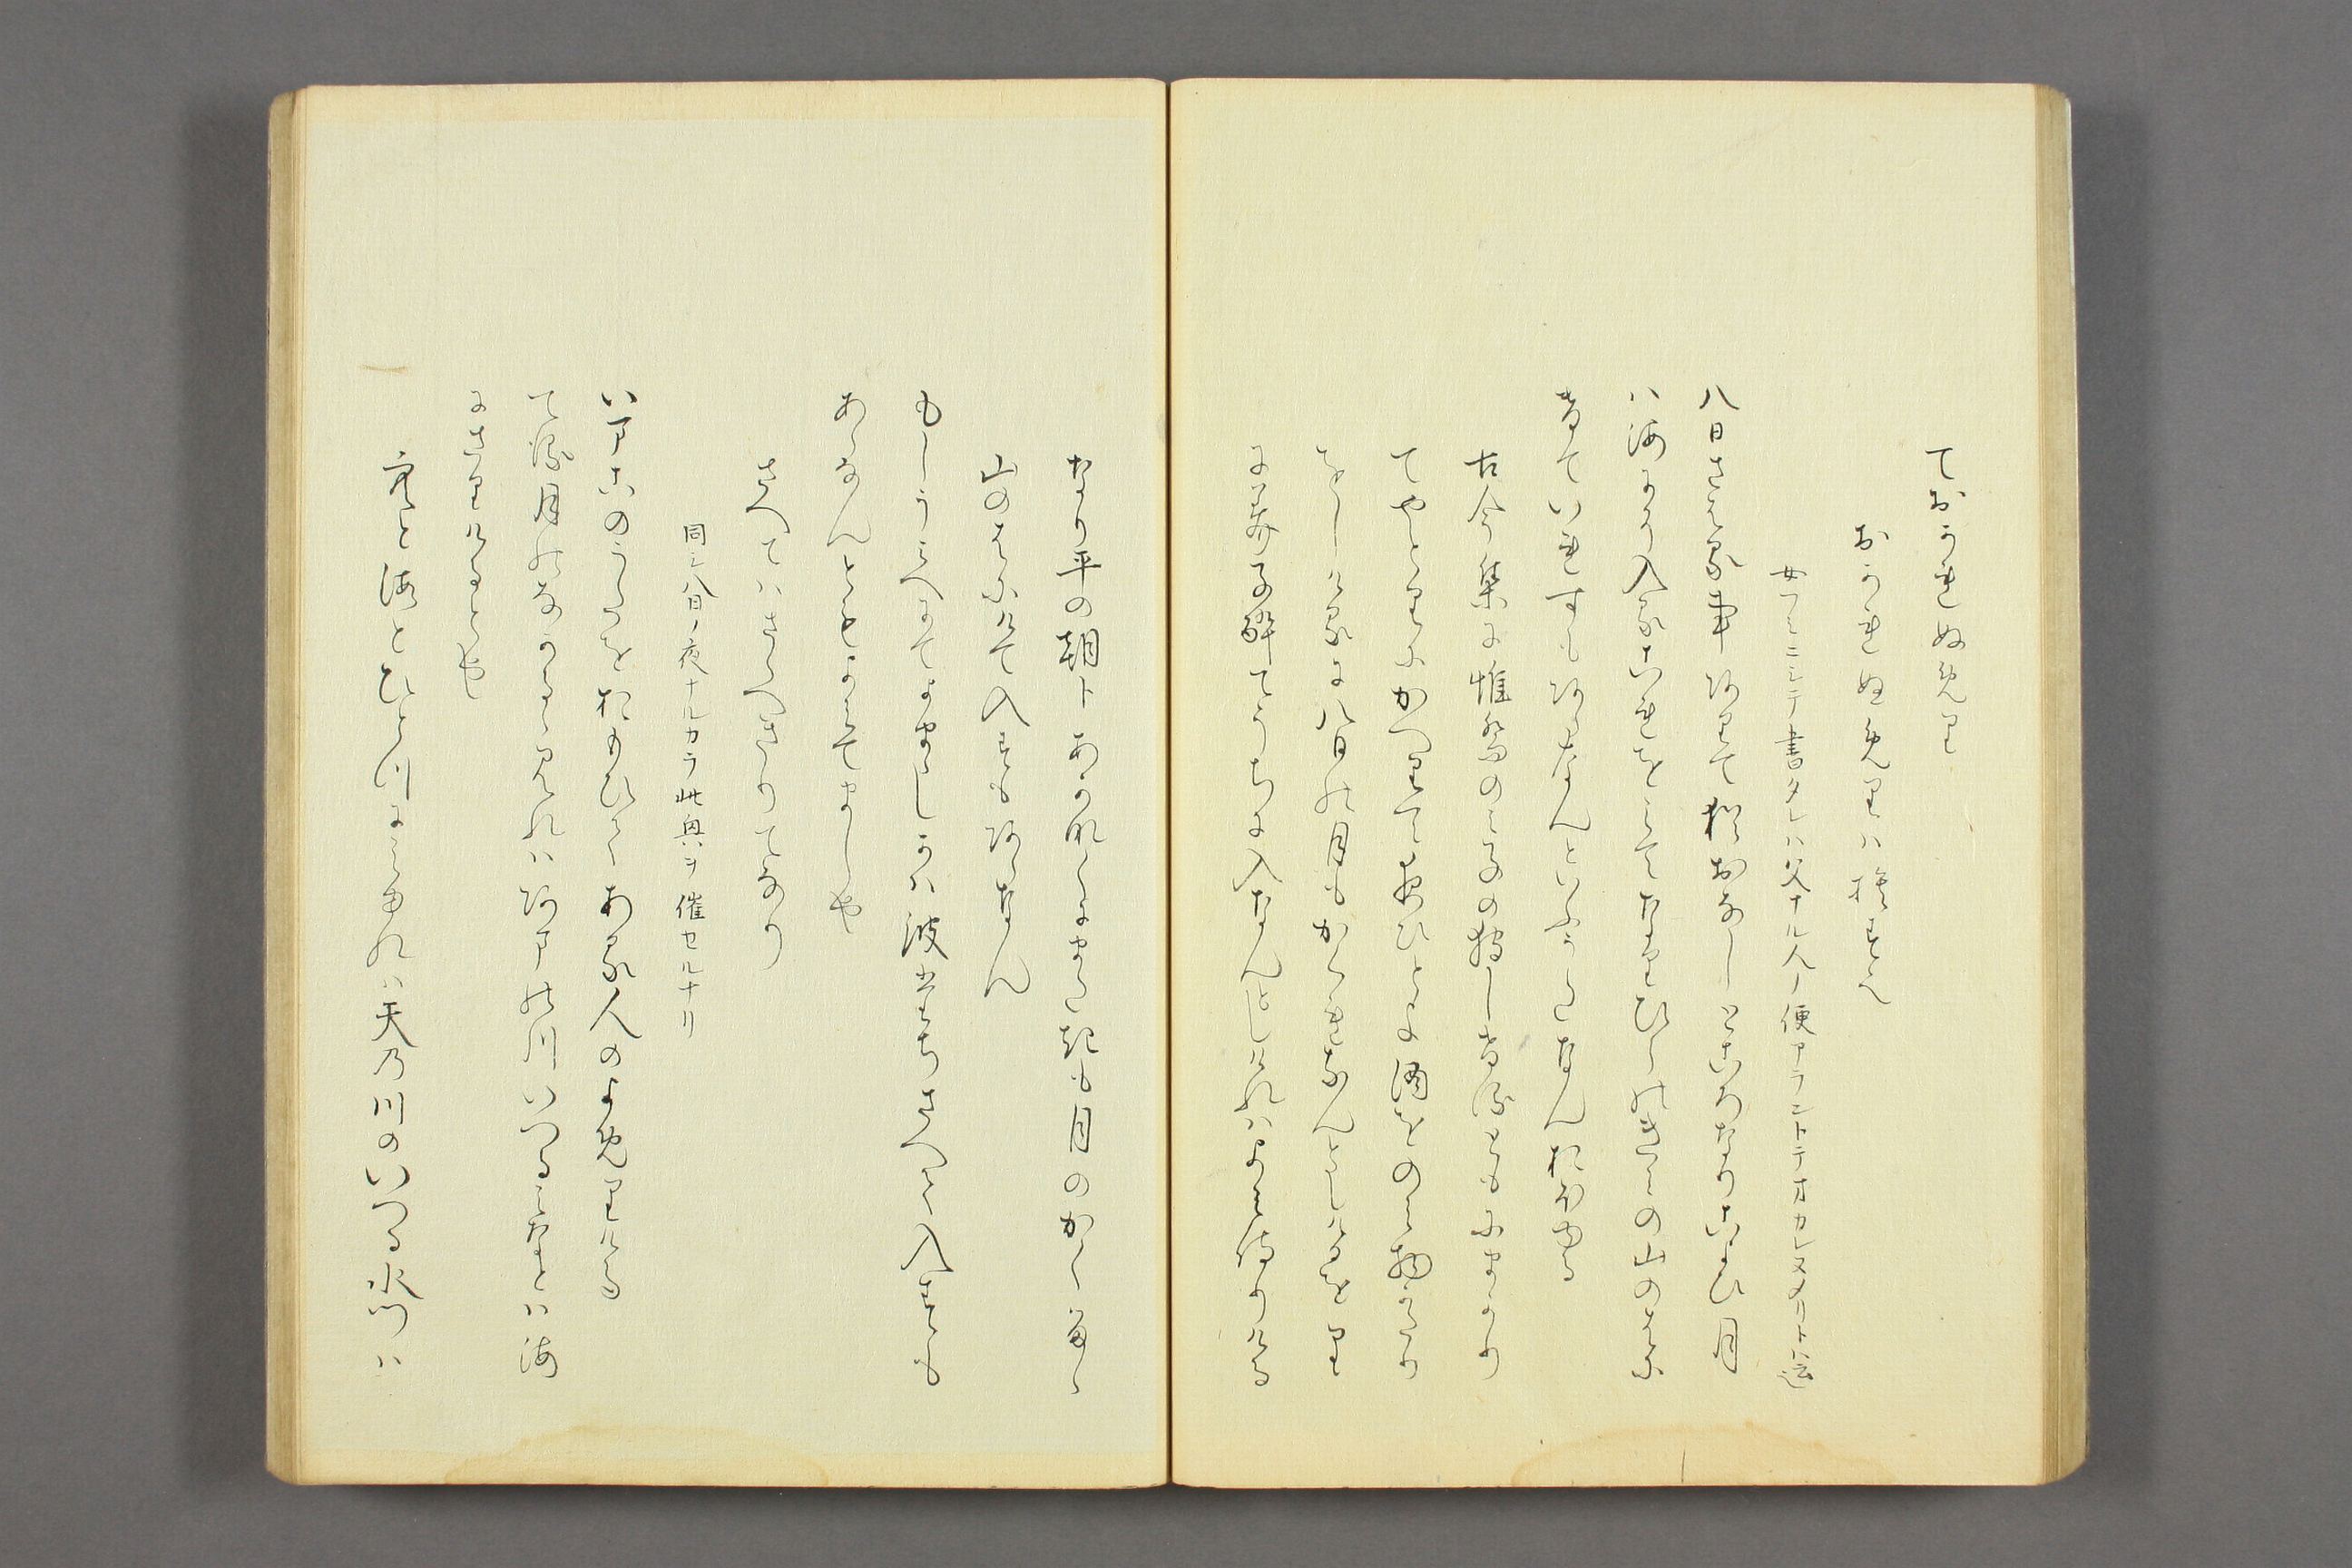 ておかれぬめり
おかれぬめりハ捨す
女フミニシテ書タレハ父ナル人ノ便アラントテオカレヌメリト云
八日さはる事ありて猶おなしところなりこよひ月
ハ海にそ入るこれをみてなりひらのきみの山のはに
けていれすもあらなんといふうたなんおもほゆる
古今集に惟喬のみこの狩しける供にまかり
てやとりにかへりて夜ひとよ酒をのみ物かたり
をしけるに八日の月もかくれなんとしけるをり
にみこ酔てうちに入なんとしけれハよみ侍りける
なり平の朝臣あかなくにまたきも月のかくるゝか
山のはにけて入すもあらなん
もしうみへにてよまましかハ波たちさへて入すも
あらなんともよみてましや
さへてハさへきりてなり
同シ八日ノ夜ナルカラ此興ヲ催セルナリ
いまこのうたをおもひいてゝある人のよめりける
てる月のなかるゝみれハあまの川いつるみなとハ海
にさりけるとや
空と海とひとつにみゆれハ天の川のいつる所ハ